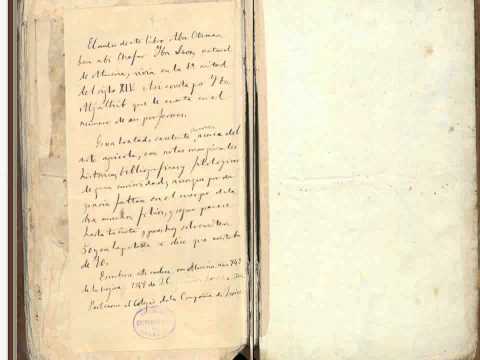 El autor de este libro Abu Otsman
ben abi Chafar Ibn Leon, natural
de Almeria, vivia en la 1ª mitad
del siglo XIV. Asi consta por
que le cuenta en el
número de sus profesores.
Es un tratado, excelente, acerca del
arte agricola, con notas marginales
historicas, bibliograficas y filologicas
de gran curiosidad, aunque por des-
gracia faltan en el cuerpo de la
obra muchos folios, y que parece
hasta
50 y en la portada se dice que constaba
de 70.
Escribiose este codice en Almeria, año 749
de la hegira, 1348 de J.C.
Pertenece al Colegio de la Compañia de Jesus